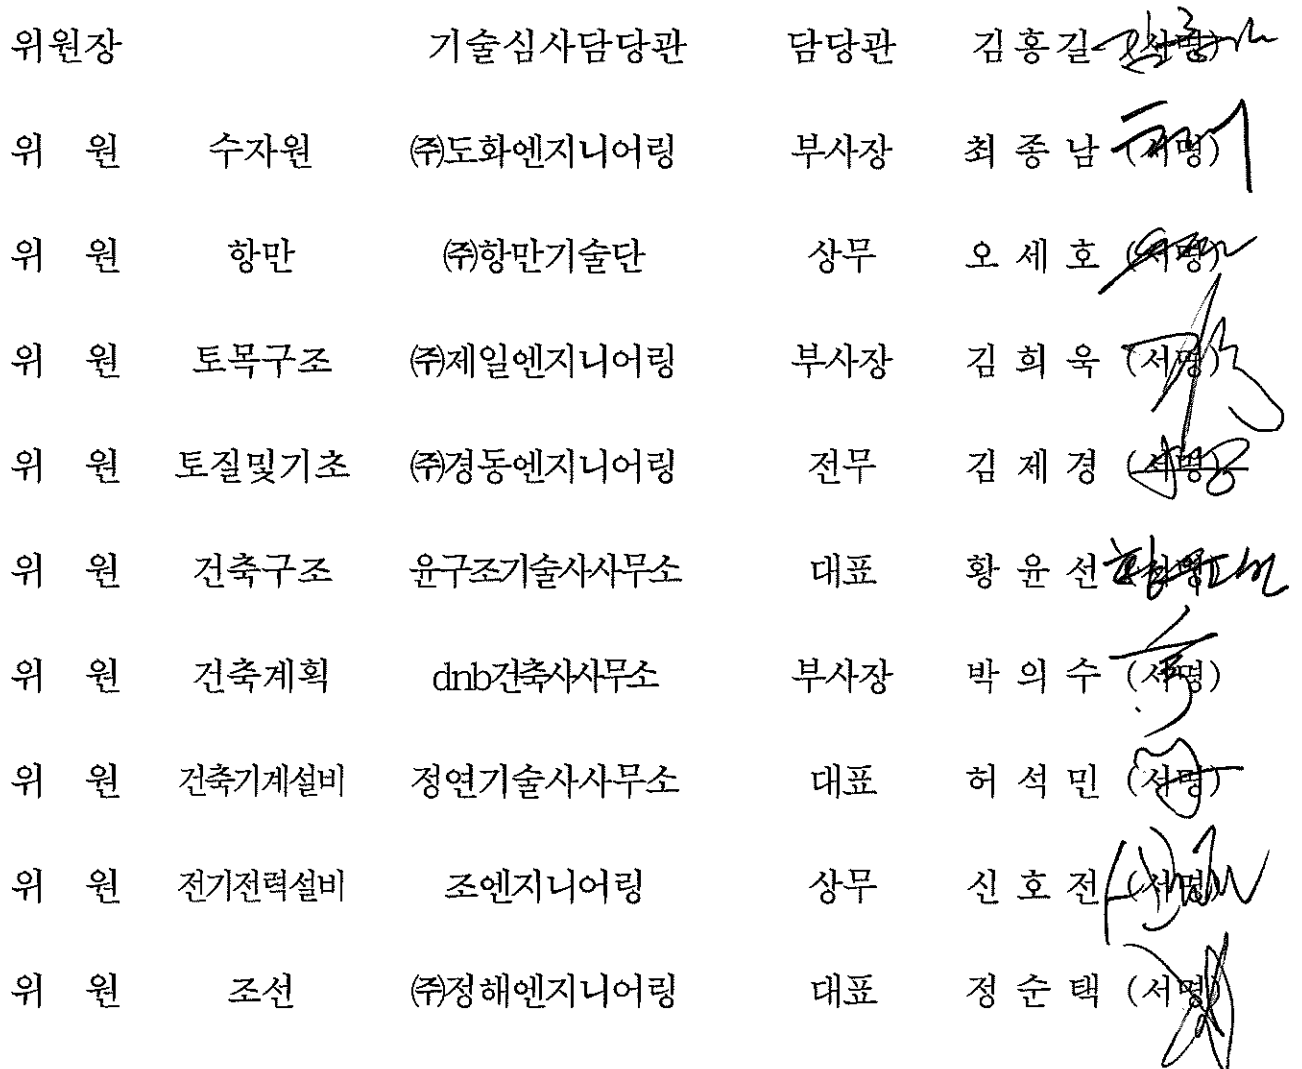 위원장 기술심사담당관 담당관 김홍길 (서명)
위 원 수자원 ㈜도화엔지니어링 부사장 최 종 남 (서명)
위 원 항만 ㈜항만기술단 상무 오 세 호 (서명)
위 원 토목구조 ㈜제일엔지니어링 부사장 김 희 욱 (서명)
위 원 토질및기초 ㈜경동엔지니어링 전무 김 제 경 (서명)
위 원 건축구조 윤구조기술사사무소 대표 황 윤 선 (서명)
위 원 건축계획 dnb건축사사무소 부사장 박 의 수 (서명)
위 원 건축기계설비 정연기술사사무소 대표 허 석 민 (서명)
위 원 전기전력설비 조엔지니어링 상무 신 호 전 (서명)
위 원 조선 ㈜정해엔지니어링 대표 정 순 택 (서명)